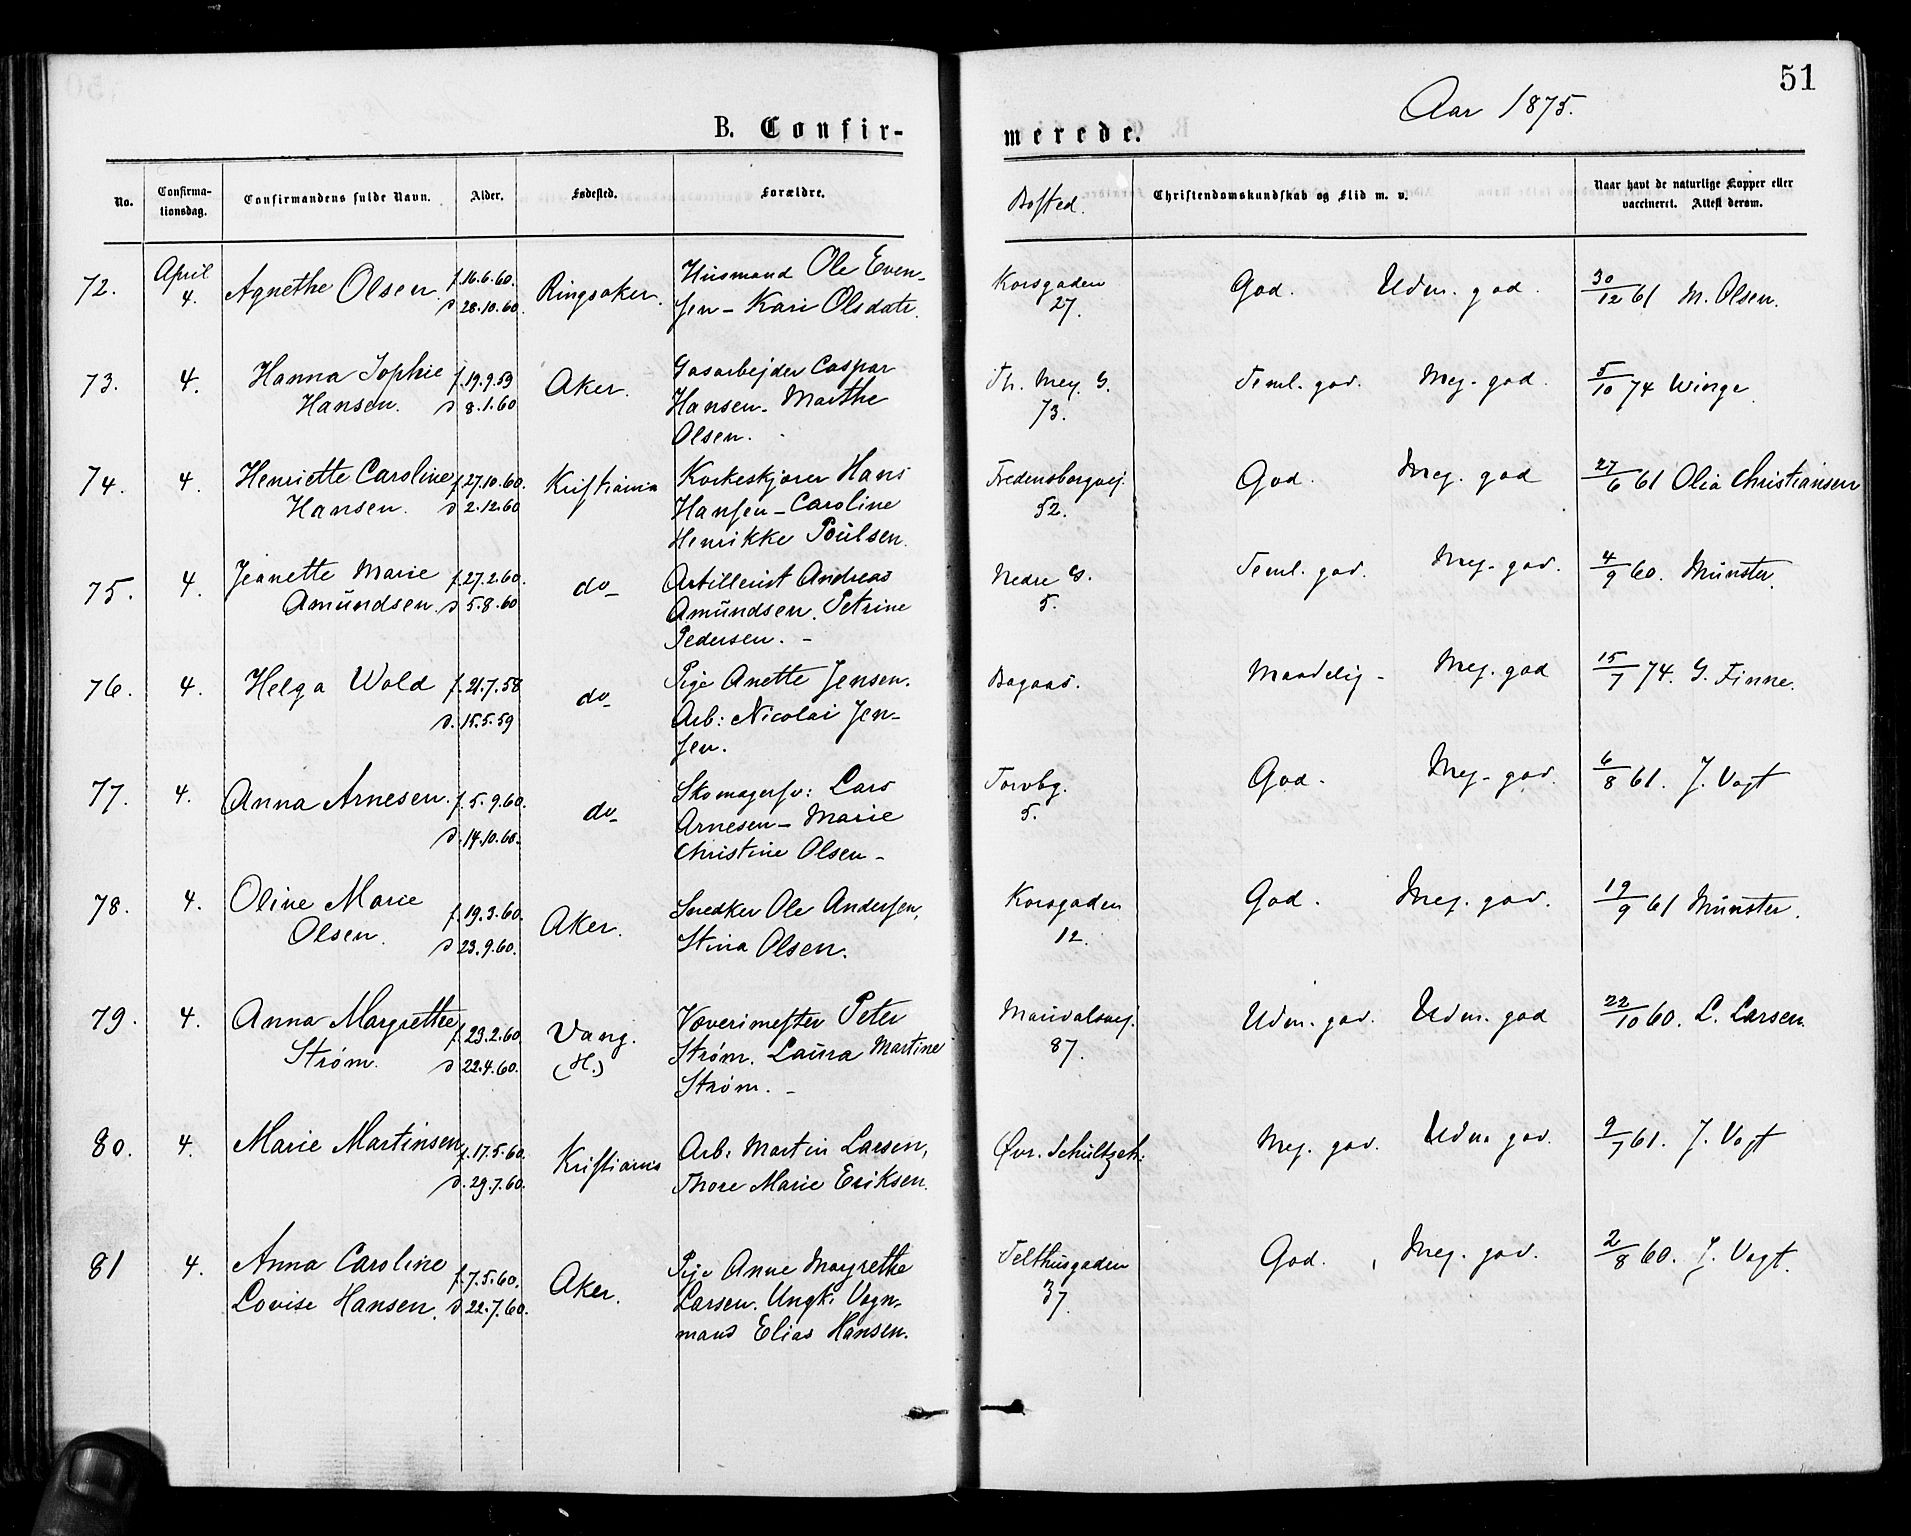 51
Aar 1875.
B. Confir-
merede.
No.
Confirma-
tionsdag.
Confirmandens fulde Navn.
Alder.
Fødested.
Forældre.
Bosted.
Christendomskundskab og Flid m. v.
Naar havt de naturlige Kopper eller
vaccineret. Attest derom.
72. April 4. Agnethe Olsen. f. 16.6.60. d 28.10.60. Ringsaker. Husmand Ole Even-
sen - Kari Olsdatr.
Korsgaden 27. God. Udm. god. 30/12 61 M. Olsen.
73. 4. Hanna Sophie
Hansen. f. 19.9.59 d 8.1.60 Aker. Gasarbejder Caspar
Hansen. Marthe
Olsen.
Th. Mey. G. 73. Teml. god. Meg. god. 5/10 74 Winge
74. 4. Henriette Caroline
Hansen. f. 27.10.60. d 2.12.60 Kristiania Korkeskjærer Hans
Hansen - Caroline
Henrikke Poulsen.
Fredensborgvej. 52. God. Meg. god 27/6 61 Olia Christiansen
75. 4. Jeanette Marie
Amundsen. f. 27.2.60. d 5.8.60 do - Artillerist Andreas
Amundsen. Petrine
Pedersen. -
Nedre G. 5. Teml. god. Meg. god. 4/9 60. Münster.
76. 4. Helga Wold f. 21.7.58 d. 15.5.59 do - Pige Anette Jensen.
Arb: Nicolai Jen-
sen.
Bagaas. Maadelig - Meg. god 15/7 74. G. Finne.
77. 4. Anna Arnesen. f. 5.9.60. d. 14.10.60. do - Skomagersv: Lars
Arnesen - Marie
Christine Olsen -
Torvbg. 5. God. Meg. god. 6/8 61. J. Vogt
78. 4. Oline Marie
Olsen. f. 19.3.60. d 23.9.60. Aker. Snedker Ole Andersen,
Stina Olsen.
Korsgaden 12. God. Meg. god. 19/9 61 Münster.
79. 4. Anna Margrethe
Strøm. f. 23.2.60. d 22.4.60. Vang. (H.) Væverimester Peter
Strøm. Laura Martine
Strøm. -
Maridalsvej. 87. Udm. god. Udm. god 22/10 60. L. Larsen.
80. 4. Marie Martinsen f. 17.5.60. d. 29.7.60. Kristiania Arb. Martin Larsen,
Thore Marie Eriksen.
Øvr. Schultzeh: Meg. god. Udm. god. 9/7 61. J. Vogt
81 4. Anna Caroline
Lovise Hansen. f. 7.5.60. d 22.7.60. Aker. Pige Anne Margrethe
Larsen. Ungk. Vogn-
mand Elias Hansen.
Telthusgaden 37. God. Meg. god. 2/8 60. J. Vogt.